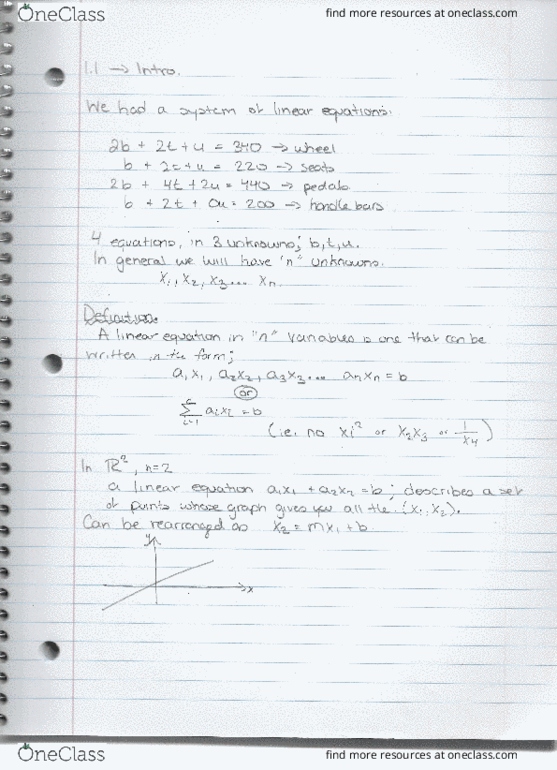 OneClass
find more resources at oneclass.com
1.1 → Intro.
We had a system of linear equations:
2b + 2t + u = 340 → wheel
b + 2t + u = 220 → seats
2b + 4t + 2u = 440 → pedals
b + 2t + 0u = 200 → handle bars
4 equations, in 3 unknowns; b, t, u.
In general we will have "n" unknowns.
x₁, x₂, x₃ ... xₙ
Definition:
A linear equation in "n" variables is one that can be
written in the form;
a₁x₁, a₂x₂, a₃x₃... aₙxₙ = b
or
Σ aᵢxᵢ = b
(i.e. no x₁² or x₂x₃ or 1/x₄)
In ℝ², n=2
a linear equation a₁x₁ + a₂x₂ = b; describes a set
of points whose graph gives you all the (x₁, x₂).
Can be rearranged as x₂ = mx₁ + b
y
x
OneClass
find more resources at oneclass.com